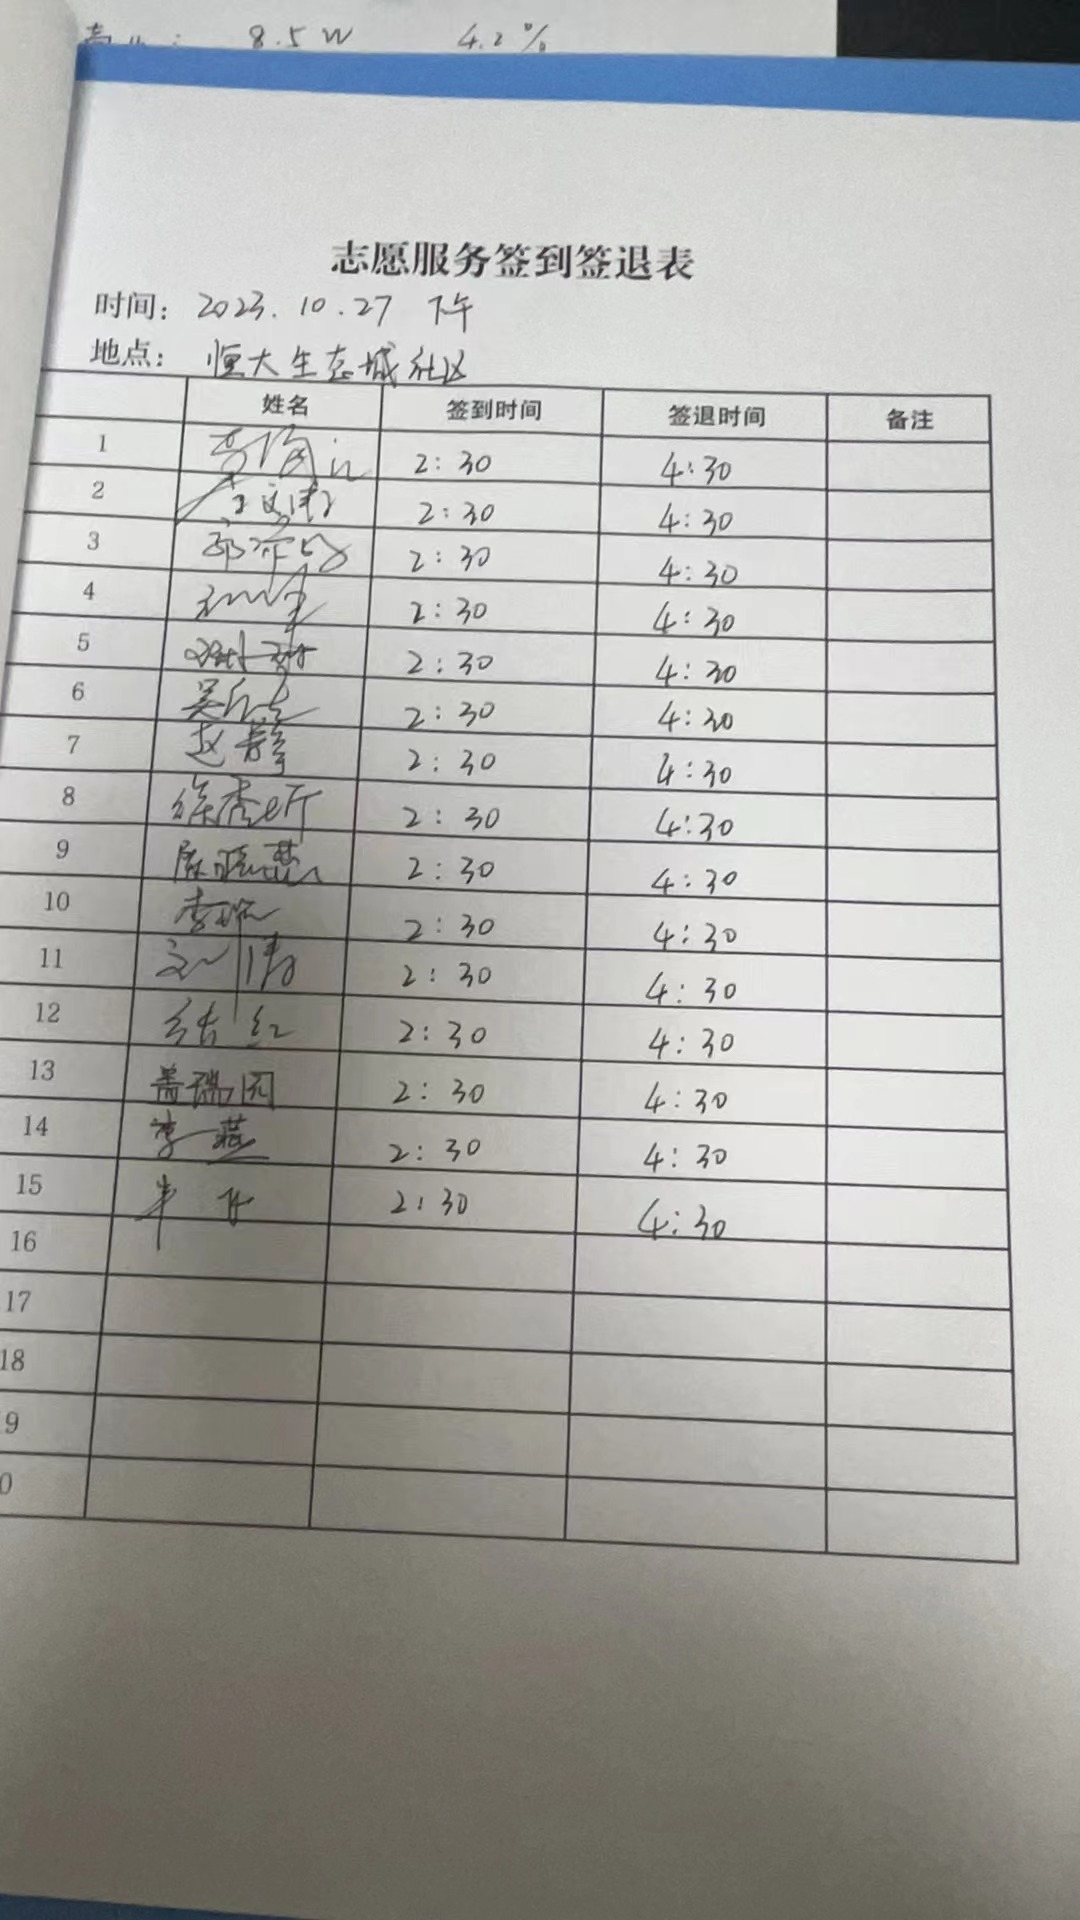 8.5W 4.2%
志愿服务签到签退表
时间: 2023.10.27 下午
地点: 恒大生态城社区
姓名 签到时间 签退时间 备注
1 2:30 4:30
2 2:30 4:30
3 2:30 4:30
4 2:30 4:30
5 2:30 4:30
6 2:30 4:30
7 赵 2:30 4:30
8 徐秀 2:30 4:30
9 2:30 4:30
10 李 2:30 4:30
11 刘倩 2:30 4:30
12 红 2:30 4:30
13 盖瑞园 2:30 4:30
14 李燕 2:30 4:30
15 2:30 4:30
16
17
18
9
0